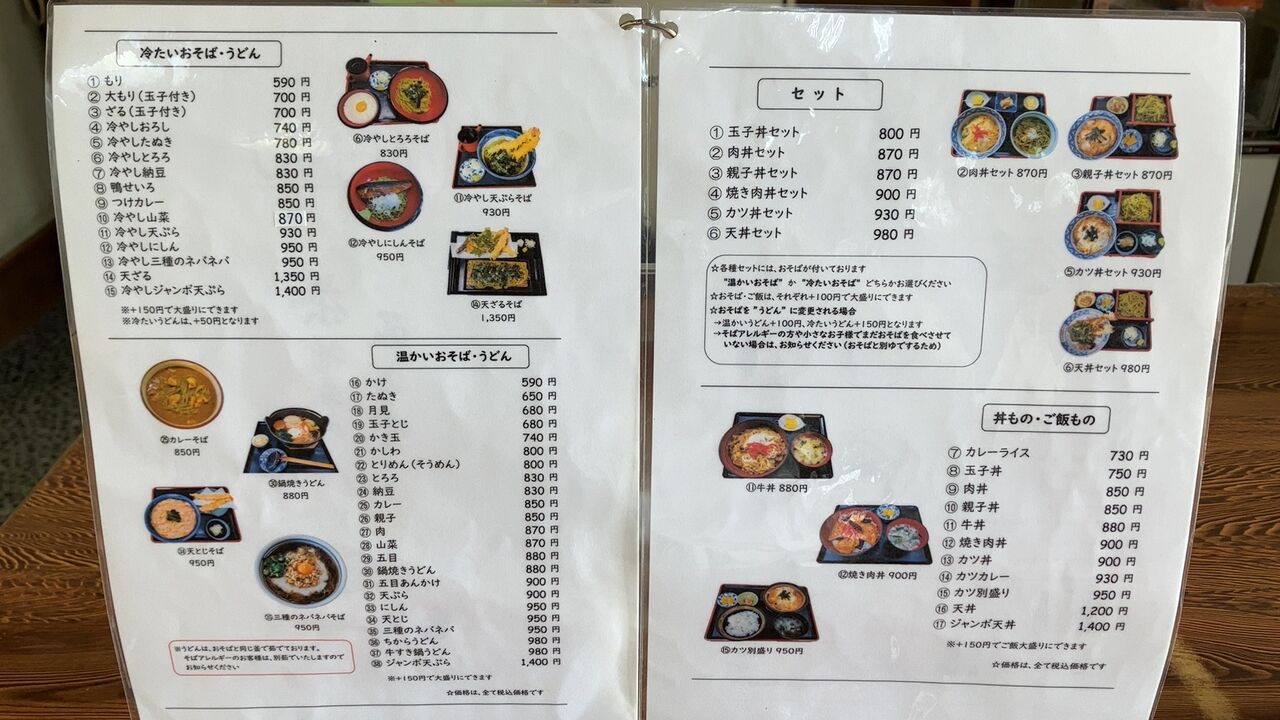 冷たいおそば・うどん
① もり 590 円
② 大もり(玉子付き) 700 円
③ ざる(玉子付き) 700 円
④ 冷やしおろし 740 円
⑤ 冷やしたぬき 780 円
⑥ 冷やしとろろ 830 円
⑦ 冷やし納豆 830 円
⑧ 鴨せいろ 850 円
⑨ つけカレー 850 円
⑩ 冷やし山菜 870 円
⑪ 冷やし天ぷら 930 円
⑫ 冷やしにしん 950 円
⑬ 冷やし三種のネバネバ 950 円
⑭ 天ざる 1,350 円
⑮ 冷やしジャンボ天ぷら 1,400 円
※+150円で大盛りにできます
※冷たいうどんは、+50円となります
⑥冷やしとろろそば
830円
⑪冷やし天ぷらそば
930円
⑫冷やしにしんそば
950円
⑭天ざるそば
1,350円
温かいおそば・うどん
⑯ かけ 590 円
⑰ たぬき 650 円
⑱ 月見 680 円
⑲ 玉子とじ 680 円
⑳ かき玉 740 円
㉑ かしわ 800 円
㉒ とりめん(そうめん) 800 円
㉓ とろろ 830 円
㉔ 納豆 830 円
㉕ カレー 850 円
㉖ 親子 850 円
㉗ 肉 870 円
㉘ 山菜 870 円
㉙ 五目 880 円
㉚ 鍋焼きうどん 880 円
㉛ 五目あんかけ 900 円
㉜ 天ぷら 900 円
㉝ にしん 950 円
㉞ 天とじ 950 円
㉟ 三種のネバネバ 950 円
㊱ ちからうどん 980 円
㊲ 牛すき鍋うどん 980 円
㊳ ジャンボ天ぷら 1,400 円
※+150円で大盛りにできます
☆価格は、全て税込価格です
㉕カレーそば
850円
㉚鍋焼きうどん
880円
㉞天とじそば
950円
㉟三種のネバネバそば
950円
※うどんは、おそばと同じ釜で茹でております。
そばアレルギーのお客様は、別茹でいたしますので
お知らせください
セット
① 玉子丼セット 800 円
② 肉丼セット 870 円
③ 親子丼セット 870 円
④ 焼き肉丼セット 900 円
⑤ カツ丼セット 930 円
⑥ 天丼セット 980 円
②肉丼セット 870円
③親子丼セット 870円
⑤カツ丼セット 930円
⑥天丼セット 980円
☆各種セットには、おそばが付いております
"温かいおそば" か "冷たいおそば" どちらかお選びください
☆おそば・ご飯は、それぞれ+100円で大盛りにできます
☆おそばを "うどん" に変更される場合
→温かいうどん+100円、冷たいうどん+150円となります
→そばアレルギーの方や小さなお子様でまだおそばを食べさせて
いない場合は、お知らせください(おそばと別ゆでするため)
丼もの・ご飯もの
⑦ カレーライス 730 円
⑧ 玉子丼 750 円
⑨ 肉丼 850 円
⑩ 親子丼 850 円
⑪ 牛丼 880 円
⑫ 焼き肉丼 900 円
⑬ カツ丼 900 円
⑭ カツカレー 930 円
⑮ カツ別盛り 950 円
⑯ 天丼 1,200 円
⑰ ジャンボ天丼 1,400 円
※+150円でご飯大盛りにできます
☆価格は、全て税込価格です
⑪牛丼 880円
⑫焼き肉丼 900円
⑮カツ別盛り 950円